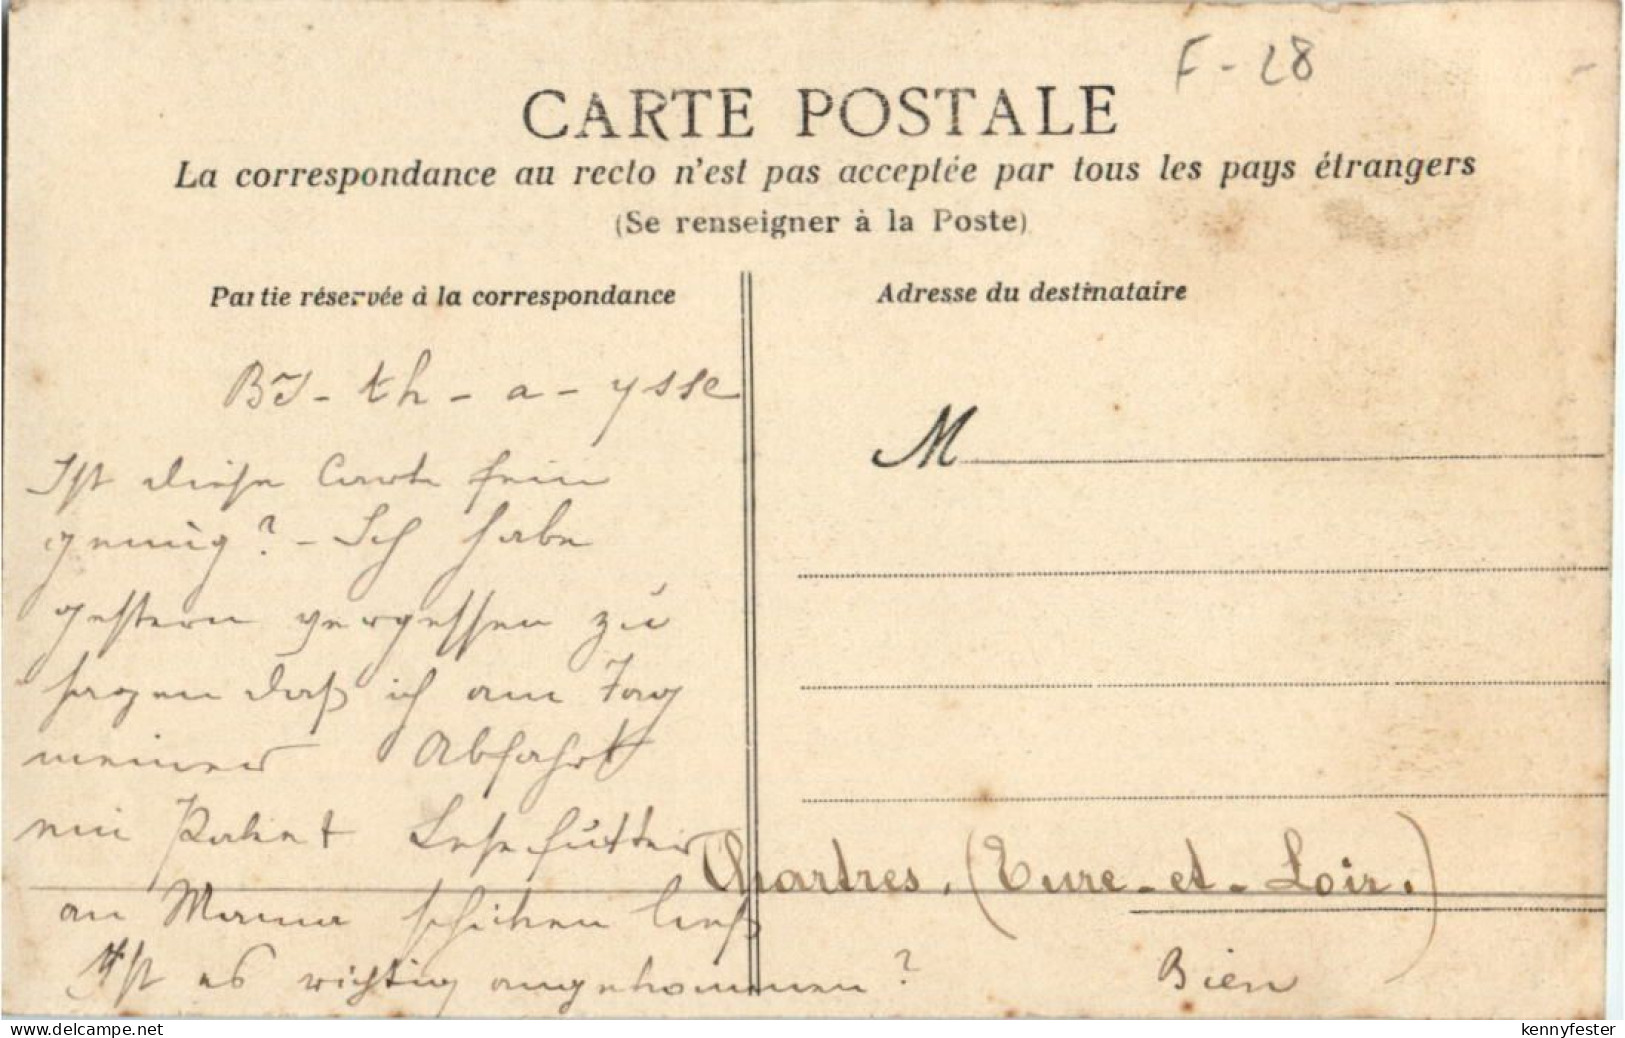 F-28
CARTE POSTALE
La correspondance au recto n'est pas acceptée par tous les pays étrangers
(Se renseigner à la Poste)
Partie réservée à la correspondance
Adresse du destinataire
th - a - ysse
M
Ist diese Carte fein
genug? - Ich habe
gestern vergessen zu
sagen daß ich am Tag
meiner Abfahrt
ein Paket Lesefutter
Chartres, (Eure-et-Loir.)
an Mama schicken ließ
Ist es richtig angekommen?
Bien
delcampe.net
kennyfester